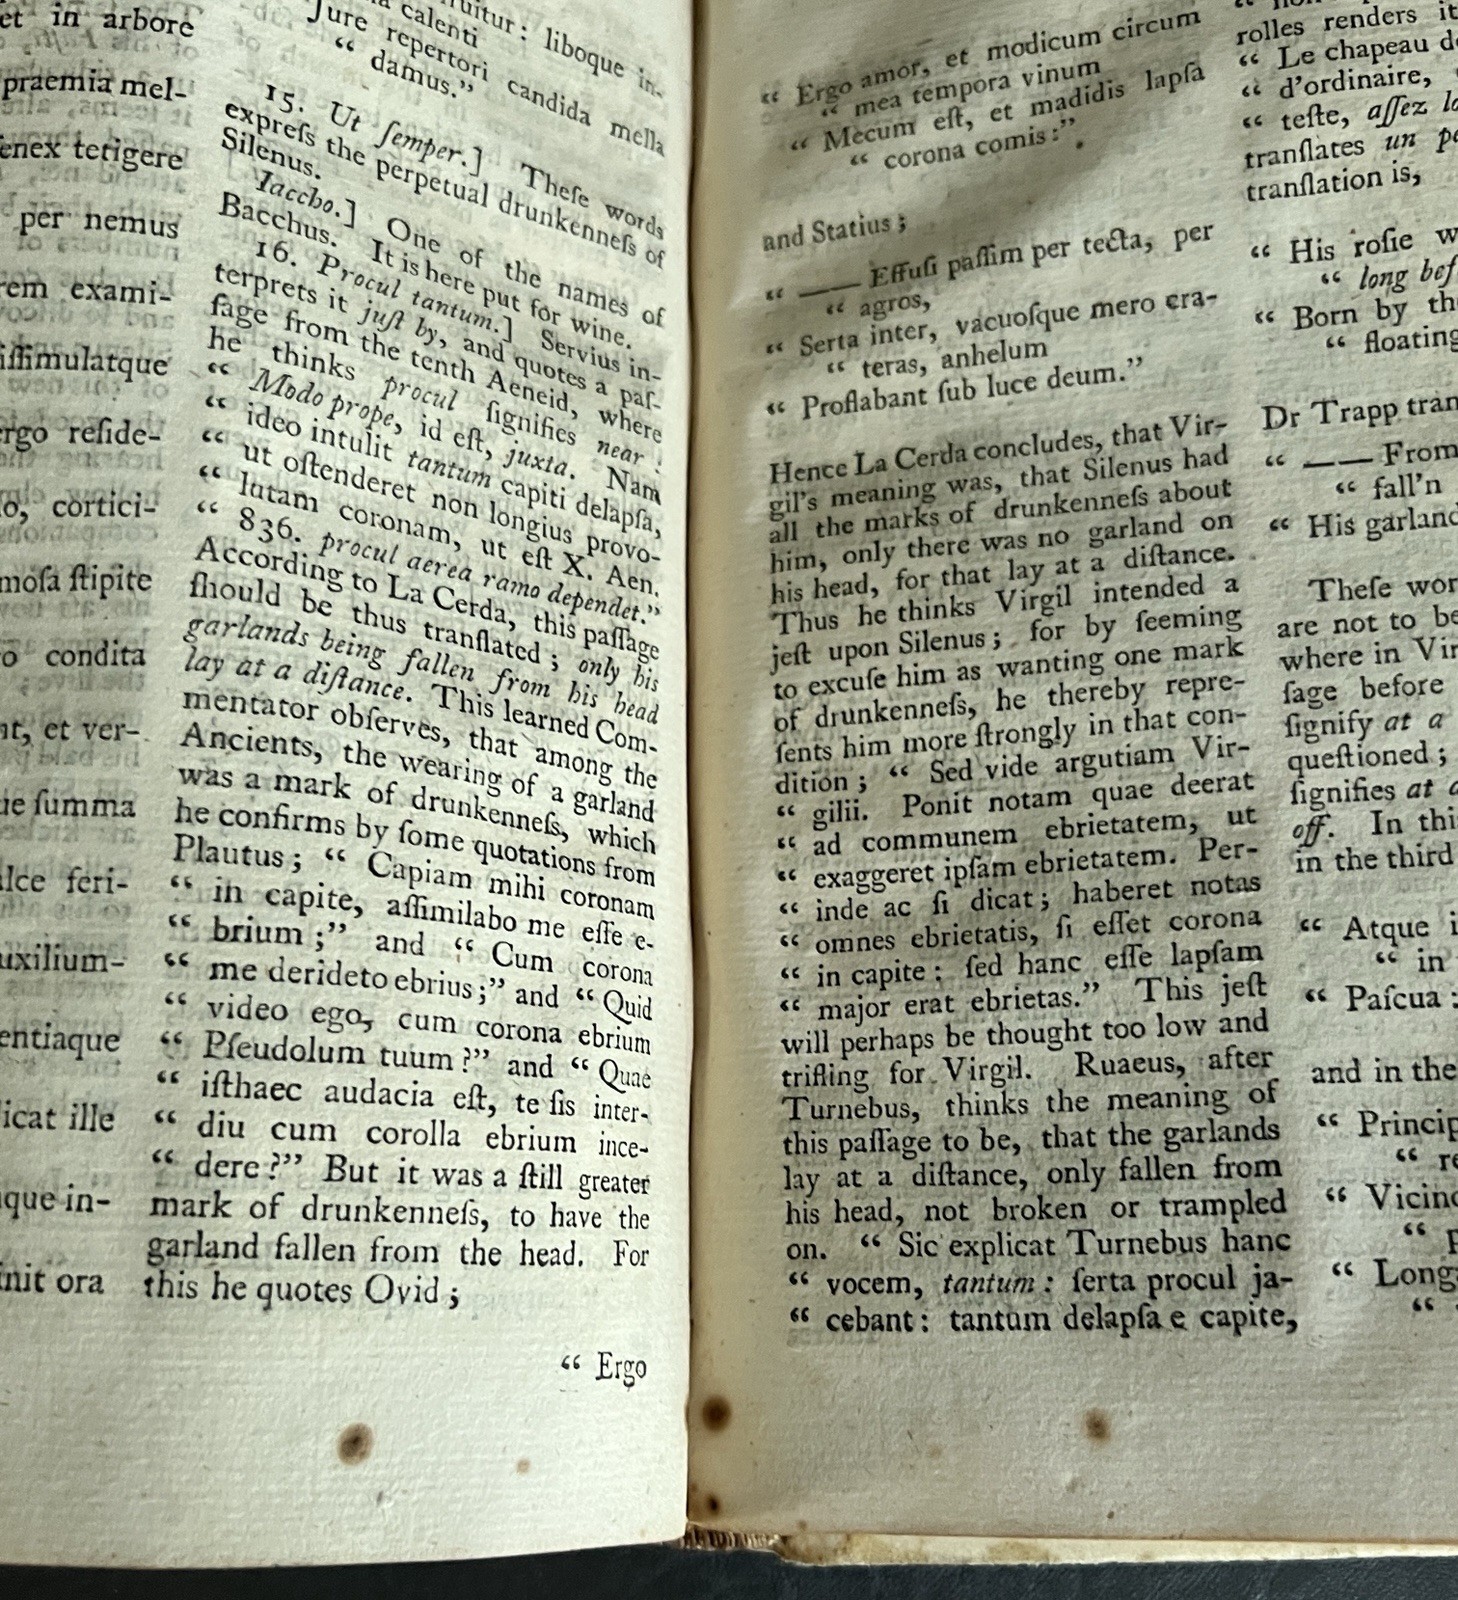 et in arbore
praemia mel-
enex tetigere
per nemus
rem exami-
issimulatque
ergo reside-
o, cortici-
mosa stipite
o condita
nt, et ver-
ue summa
ulce feri-
uxilium-
entiaque
icat ille
que in-
init ora
ruitur: liboque in-
calenti
Jure repertori candida mella
“ damus.”
15. Ut ſemper.] Theſe words
expreſs the perpetual drunkenneſs of
Silenus.
Iaccho.] One of the names of
Bacchus. It is here put for wine.
16. Procul tantum.] Servius in-
terprets it juſt by, and quotes a paſ-
ſage from the tenth Aeneid, where
he thinks procul ſignifies near:
“ Modo prope, id eſt, juxta. Nam
“ ideo intulit tantum capiti delapſa,
“ ut oſtenderet non longius provo-
“ lutam coronam, ut eſt X. Aen.
“ 836. procul aerea ramo dependet.”
According to La Cerda, this paſſage
ſhould be thus tranſlated; only his
garlands being fallen from his head
lay at a diſtance. This learned Com-
mentator obſerves, that among the
Ancients, the wearing of a garland
was a mark of drunkenneſs, which
he confirms by ſome quotations from
Plautus; “ Capiam mihi coronam
“ in capite, aſſimilabo me eſſe e-
“ brium;” and “ Cum corona
“ me derideto ebrius;” and “ Quid
“ video ego, cum corona ebrium
“ Pſeudolum tuum?” and “ Quae
“ iſthaec audacia eſt, te ſis inter-
“ diu cum corolla ebrium ince-
“ dere?” But it was a ſtill greater
mark of drunkenneſs, to have the
garland fallen from the head. For
this he quotes Ovid;
“ Ergo
“ Ergo amor, et modicum circum
“ mea tempora vinum
“ Mecum eſt, et madidis lapſa
“ corona comis:”
and Statius;
“ —— Effuſi paſſim per tecta, per
“ agros,
“ Serta inter, vacuoſque mero cra-
“ teras, anhelum
“ Proflabant ſub luce deum.”
Hence La Cerda concludes, that Vir-
gil's meaning was, that Silenus had
all the marks of drunkenneſs about
him, only there was no garland on
his head, for that lay at a diſtance.
Thus he thinks Virgil intended a
jeſt upon Silenus; for by ſeeming
to excuſe him as wanting one mark
of drunkenneſs, he thereby repre-
ſents him more ſtrongly in that con-
dition; “ Sed vide argutiam Vir-
“ gilii. Ponit notam quae deerat
“ ad communem ebrietatem, ut
“ exaggeret ipſam ebrietatem. Per-
“ inde ac ſi dicat; haberet notas
“ omnes ebrietatis, ſi eſſet corona
“ in capite: ſed hanc eſſe lapſam
“ major erat ebrietas.” This jeſt
will perhaps be thought too low and
trifling for Virgil. Ruaeus, after
Turnebus, thinks the meaning of
this paſſage to be, that the garlands
lay at a diſtance, only fallen from
his head, not broken or trampled
on. “ Sic explicat Turnebus hanc
“ vocem, tantum: ſerta procul ja-
“ cebant: tantum delapſa e capite,
rolles renders it
“ Le chapeau d
“ d'ordinaire,
“ teſte, aſſez lo
tranſlates un pe
tranſlation is,
“ His roſie w
“ long bef
“ Born by th
“ floating
Dr Trapp tran
“ —— From
“ fall'n
“ His garland
Theſe wor
are not to be
where in Vir
ſage before
ſignify at a
queſtioned;
ſignifies at a
off. In thi
in the third
“ Atque i
“ in
“ Paſcua:
and in the
“ Princip
“ re
“ Vicin
“ p
“ Long
“